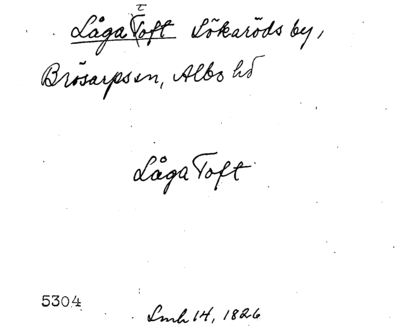 Låga Toft Sökaröds by,
Brösarps sn, Albo hd
Låga Toft
5304
Lmh 14, 1826